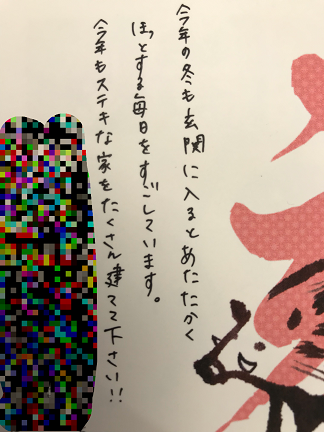 今年の冬も玄関に入るとあたたかく
ほっとする毎日をすごしています。
今年もステキな家をたくさん建てて下さい!!